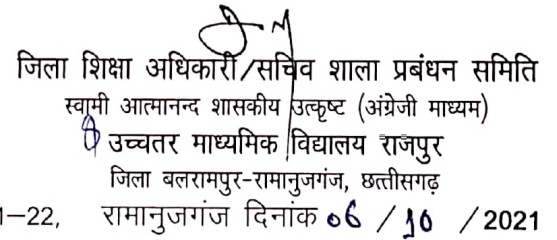 जिला शिक्षा अधिकारी/सचिव शाला प्रबंधन समिति
स्वामी आत्मानन्द शासकीय उत्कृष्ट (अंग्रेजी माध्यम)
उच्चतर माध्यमिक विद्यालय राजपुर
जिला बलरामपुर-रामानुजगंज, छत्तीसगढ़
1-22, रामानुजगंज दिनांक 06 / 10 / 2021